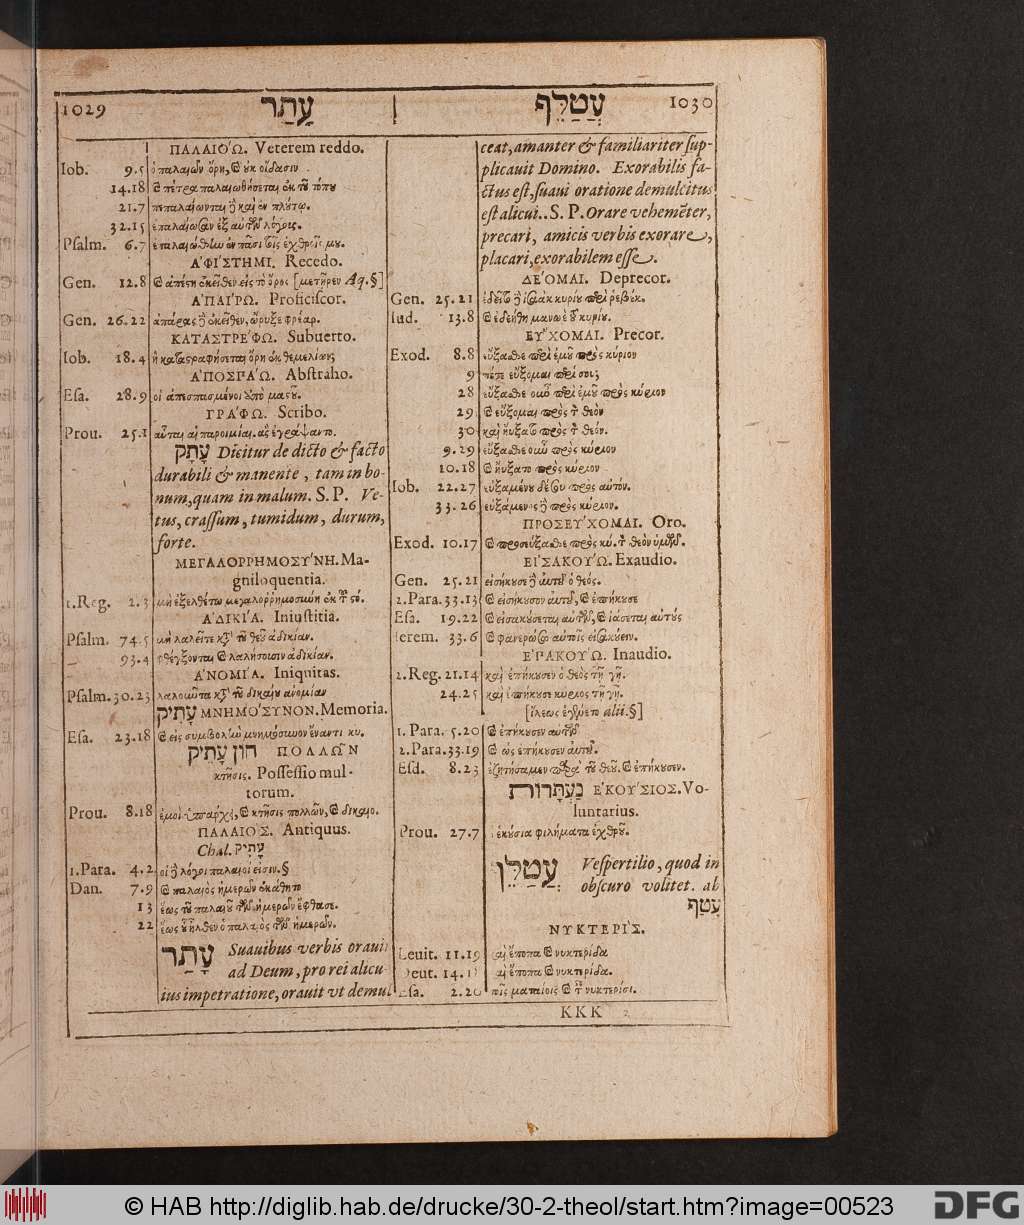 1029 עָתַר
עֲטַלֵּף 1030
ΠΑΛΑΙΟ'Ω. Veterem reddo.
Iob. 9.5 ὁ παλαιῶν ὄρη, καὶ οὐκ οἴδασιν
14.18 καὶ πέτρα παλαιωθήσεται ἐκ τοῦ τόπου
21.7 πεπαλαίωνται ἢ καὶ ἐν πλούτῳ.
32.15 ἐπαλαίωσαν ἐξ αὐτῶν λόγοις.
Psalm. 6.7 ἐπαλαιώθην ἐν πᾶσι τοῖς ἐχθροῖς μου.
Α'ΦΙΣΤΗΜΙ. Recedo.
Gen. 12.8 καὶ ἀπέστη ἐκεῖθεν εἰς τὸ ὄρος [μετῆρεν Aq.§]
Α'ΠΑΙ'ΡΩ. Proficiſcor.
Gen. 26.22 ἀπάρας ἢ ἐκεῖθεν, ὤρυξε φρέαρ.
ΚΑΤΑΣΤΡΕ'ΦΩ. Subuerto.
Iob. 18.4 ἢ καταστραφήσεται ὄρη ἐκ θεμελίων;
Α'ΠΟΣΠΑ'Ω. Abſtraho.
Eſa. 28.9 οἱ ἀπεσπασμένοι ἀπὸ μαστοῦ.
ΓΡΑ'ΦΩ. Scribo.
Prou. 25.1 αὗται αἱ παροιμίαι, ἃς ἐγράψαντο.
עָתָק Dicitur de dicto & facto
durabili & manente, tam in bo-
num, quam in malum. S. P. Ve-
tus, craſſum, tumidum, durum,
forte.
ΜΕΓΑΛΟΡΡΗΜΟΣΥ'ΝΗ. Ma-
gniloquentia.
1.Reg. 2.3 μὴ ἐξελθέτω μεγαλορρημοσύνη ἐκ τοῦ στό.
Α'ΔΙΚΙ'Α. Iniuſtitia.
Pſalm. 74.5 μὴ λαλεῖτε κατὰ τοῦ θεοῦ ἀδικίαν.
93.4 φθέγξονται καὶ λαλήσουσιν ἀδικίαν.
Α'ΝΟΜΙ'Α. Iniquitas.
Pſalm. 30.23 λαλοῦντα κατὰ τοῦ δικαίου ἀνομίαν
עָתִיק ΜΝΗΜΟ'ΣΥΝΟΝ. Memoria.
Eſa. 23.18 καὶ εἰς συμβολὴν μνημόσυνον ἔναντι κυ.
הוֹן עָתִיק ΠΟΛΛΩ͂Ν
κτῆσις. Poſſeſſio mul-
torum.
Prou. 8.18 ἐμοὶ ὑπάρχει, καὶ κτῆσις πολλῶν, καὶ δικαιο.
ΠΑΛΑΙΟ'Σ. Antiquus.
Chal. עַתִּיק
1.Para. 4.2 οἱ ἢ λόγοι παλαιοί εἰσιν.§
Dan. 7.9 καὶ παλαιὸς ἡμερῶν ἐκάθητο
13 ἕως τοῦ παλαιοῦ τῶν ἡμερῶν ἔφθασε.
22 ἕως οὗ ἦλθεν ὁ παλαιὸς τῶν ἡμερῶν.
עָתַר Suauibus verbis orauit
ad Deum, pro rei alicu-
ius impetratione, orauit vt demul
ceat, amanter & familiariter ſup-
plicauit Domino. Exorabilis fa-
ctus eſt, ſuaui oratione demulcitus
eſt alicui.. S. P. Orare vehemẽter,
precari, amicis verbis exorare,
placari, exorabilem eſſe.
ΔΕ'ΟΜΑΙ. Deprecor.
Gen. 25.21 ἐδεῖτο ἢ ἰσαὰκ κυρίου περὶ ῥεβέκ.
Iud. 13.8 καὶ ἐδεήθη μανωὲ τοῦ κυρίου.
ΕΥ'ΧΟΜΑΙ. Precor.
Exod. 8.8 εὔξασθε περὶ ἐμοῦ πρὸς κύριον
9 πότε εὔξομαι περὶ σου;
28 εὔξασθε οὖν περὶ ἐμοῦ πρὸς κύριον
29 καὶ εὔξομαι πρὸς τὸν θεὸν
30 καὶ ηὔξατο πρὸς τὸν θεόν.
9.29 εὔξασθε οὖν πρὸς κύριον
10.18 καὶ ηὔξατο πρὸς κύριον
Iob. 22.27 εὐξαμένου δέ σου πρὸς αὐτόν.
33.26 εὐξάμενος ἢ πρὸς κύριον.
ΠΡΟΣΕΥ'ΧΟΜΑΙ. Oro.
Exod. 10.17 καὶ προσεύξασθε πρὸς κύ. τὸν θεὸν ὑμῶν.
ΕΙ'ΣΑΚΟΥ'Ω. Exaudio.
Gen. 25.21 εἰσήκουσε ἢ αὐτοῦ ὁ θεός.
2.Para. 33.13 καὶ εἰσήκουσεν αὐτοῦ, καὶ ἐπήκουσε
Eſa. 19.22 καὶ εἰσακούσεται αὐτῶν, καὶ ἰάσεται αὐτούς
Ierem. 33.6 καὶ φανερώσω αὐτοῖς εἰσακούειν.
Ε'ΠΑΚΟΥ'Ω. Inaudio.
2.Reg. 21.14 καὶ ἐπήκουσεν ὁ θεὸς τῇ γῇ.
24.25 καὶ ἐπήκουσε κύριος τῇ γῇ.
[ἵλεως ἐγένετο alié.§]
1.Para. 5.20 καὶ ἐπήκουσεν αὐτῶν
2.Para. 33.19 καὶ ὡς ἐπήκουσεν αὐτοῦ.
Eſd. 8.23 ἐζητήσαμεν παρὰ τοῦ θεοῦ. καὶ ἐπήκουσεν.
נַעְתָּרוֹת Ε'ΚΟΥ'ΣΙΟΣ. Vo-
luntarius.
Prou. 27.7 ἑκούσια φιλήματα ἐχθροῦ.
עֲטַלֵּף Veſpertilio, quod in
obſcuro volitet. ab
עָטַף
ΝΥΚΤΕΡΙ'Σ.
Leuit. 11.19 καὶ ἔποπα καὶ νυκτερίδα
Deut. 14. καὶ ἔποπα καὶ νυκτερίδα.
Eſa. 2.20 τοῖς ματαίοις καὶ ταῖς νυκτερίσι.
KKK 2
© HAB http://diglib.hab.de/drucke/30-2-theol/start.htm?image=00523
DFG